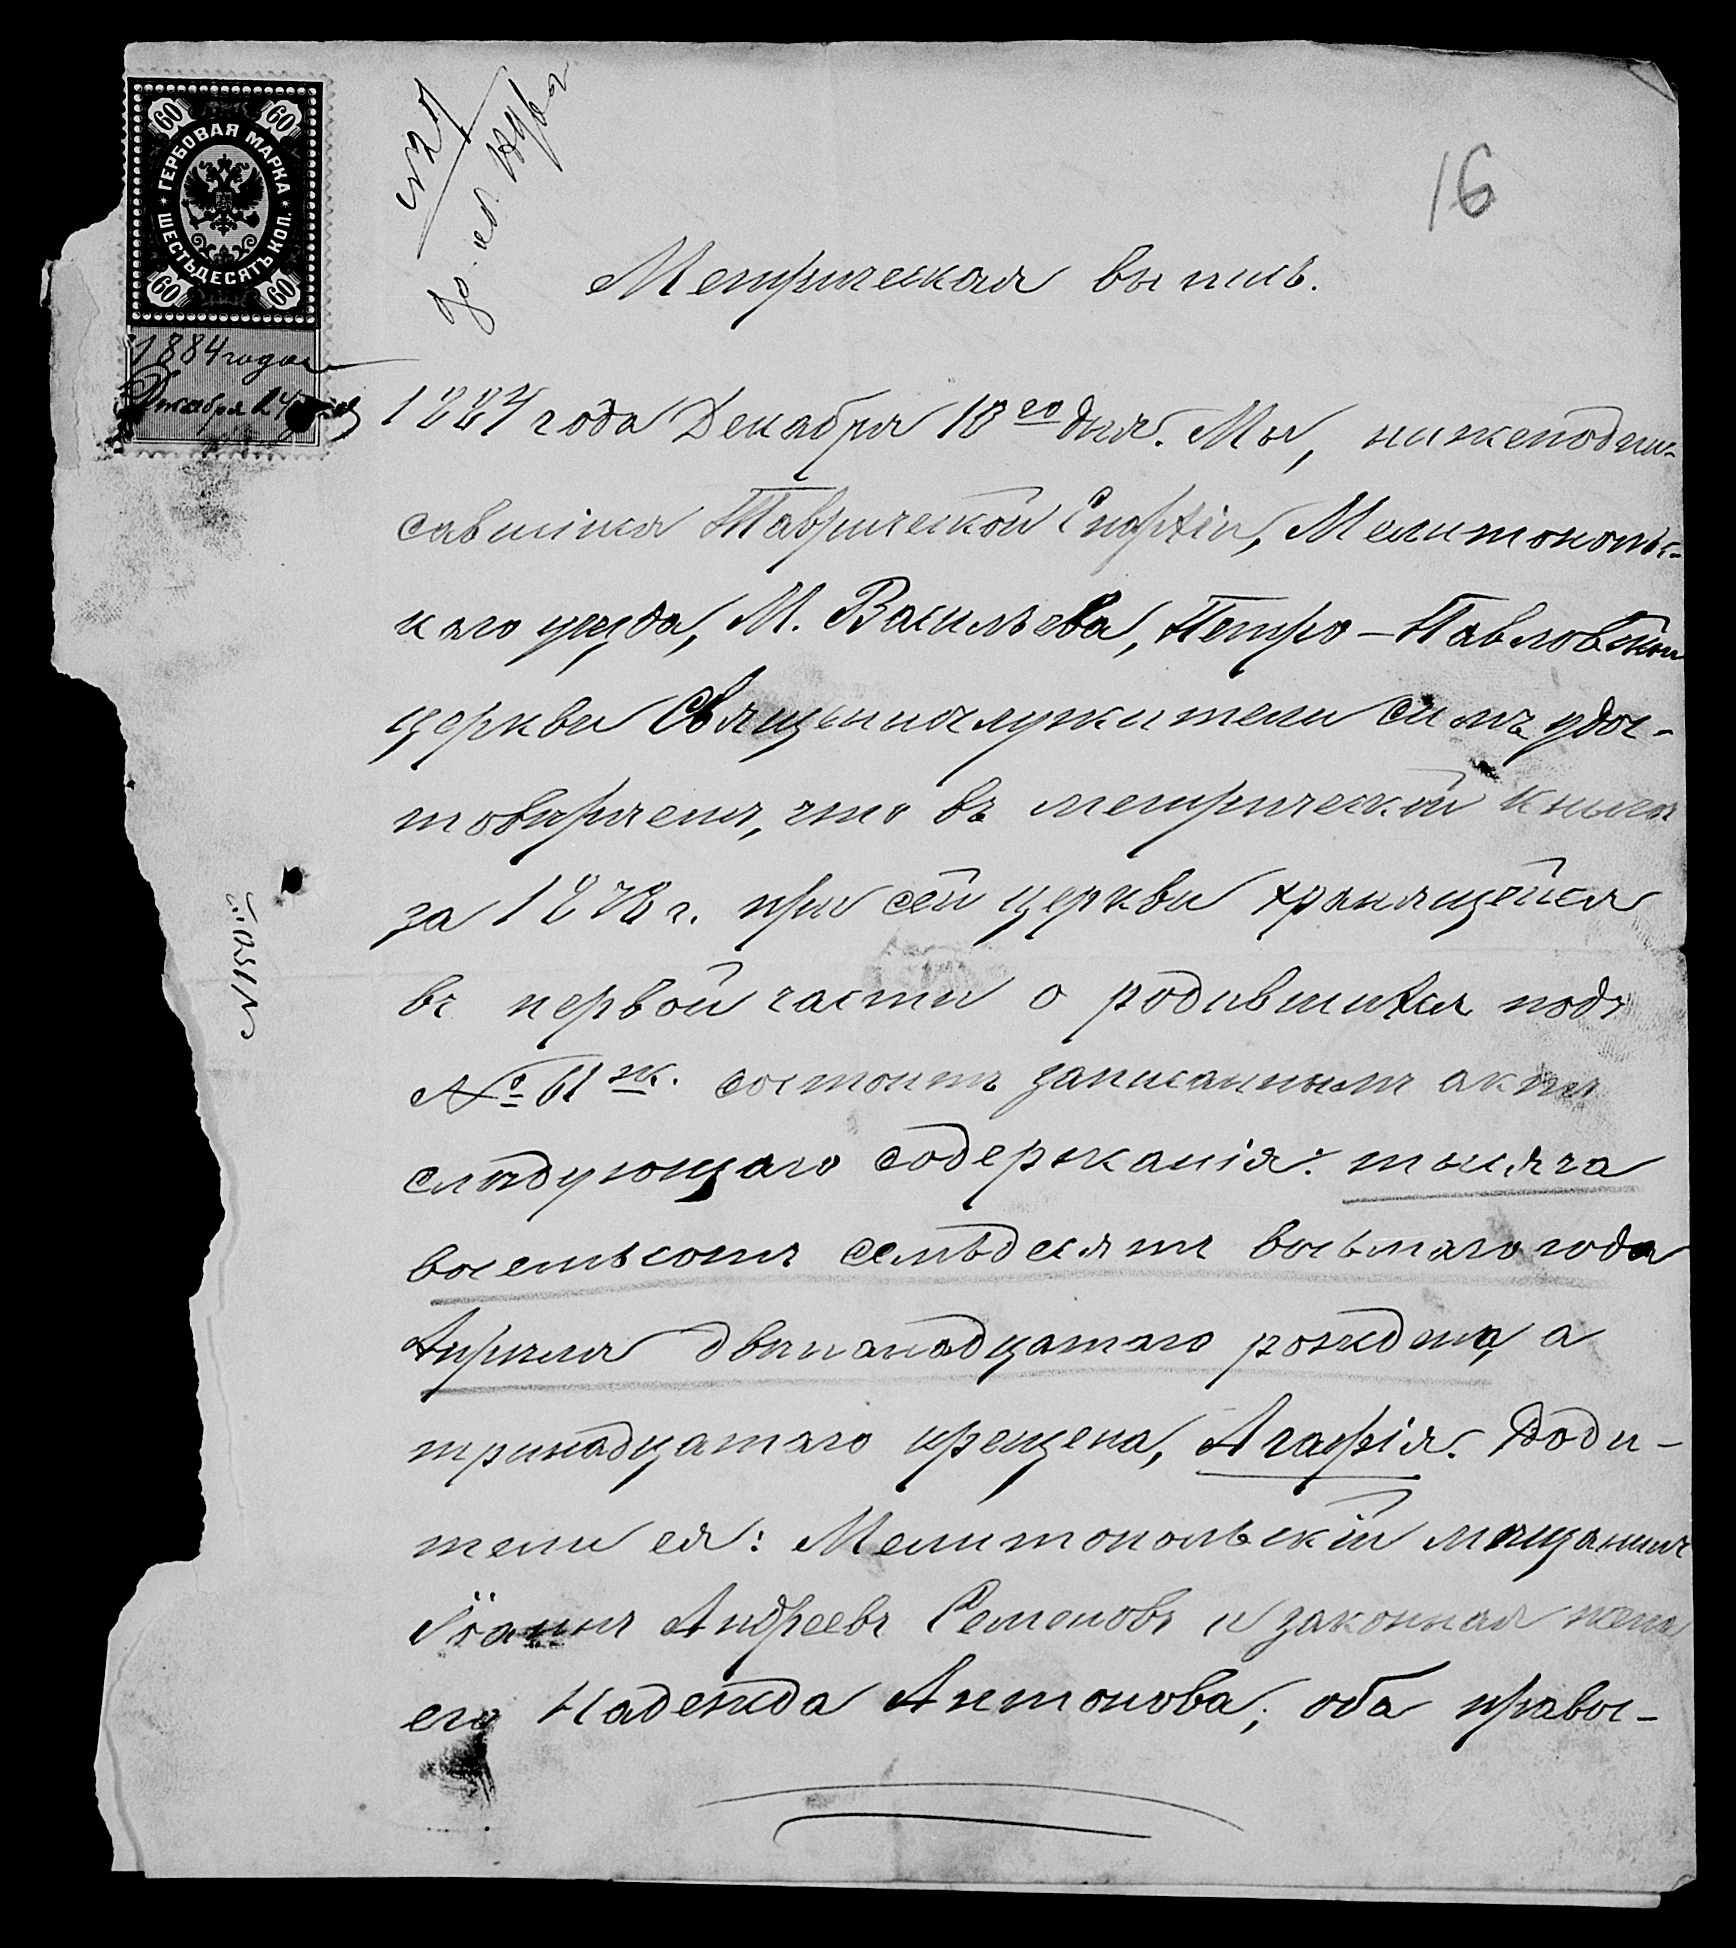 16
60 60
ГЕРБОВАЯ МАРКА
ШЕСТЬДЕСЯТЪ КОП.
60 60
1884 года
Декабря 24
Метрическая выпись.
1884 года Декабря 18го дня. Мы, нижеподпи-
савшіися Таврической Епархіи, Мелитопольс-
каго уезда, М. Васильева, Петро-Павловской
церкви Священнослужители симъ удос-
товѣряемъ, что въ метрической книгѣ
за 1878 г. при сей церкви хранящейся
въ первой части о родившихся подъ
№ 61 ж. состоитъ записаннымъ актъ
слѣдующаго содержанія: тысяча
восемьсотъ семьдесятъ восьмаго года
Апрѣля двѣнадцатаго рождена, а
тринадцатаго крещена, Агафія. Роди-
тели ея: Мелитопольскій мѣщанинъ
Іоаннъ Андреевъ Семеновъ и законная жена
его Надежда Антонова, оба правос-